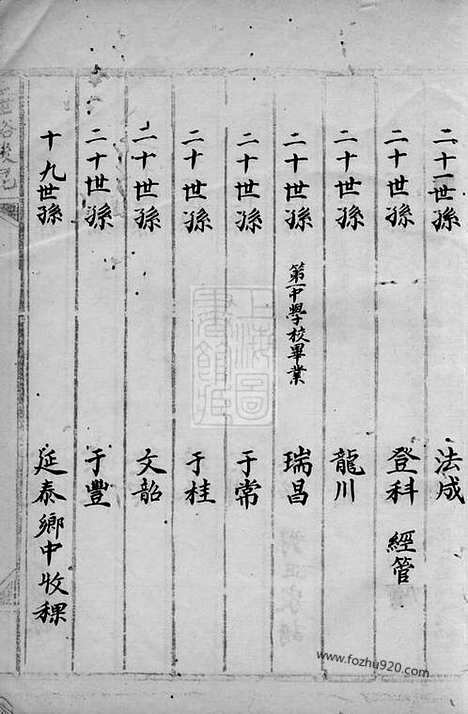 二十一世孫 法成
二十世孫 登科 經管
二十世孫 龍川
二十世孫 第一中學校畢業 瑞昌
二十世孫 于常
二十世孫 于桂
二十世孫 文韶
二十世孫 于豐
十九世孫 延泰鄉中收稞
www.fozhu920.com